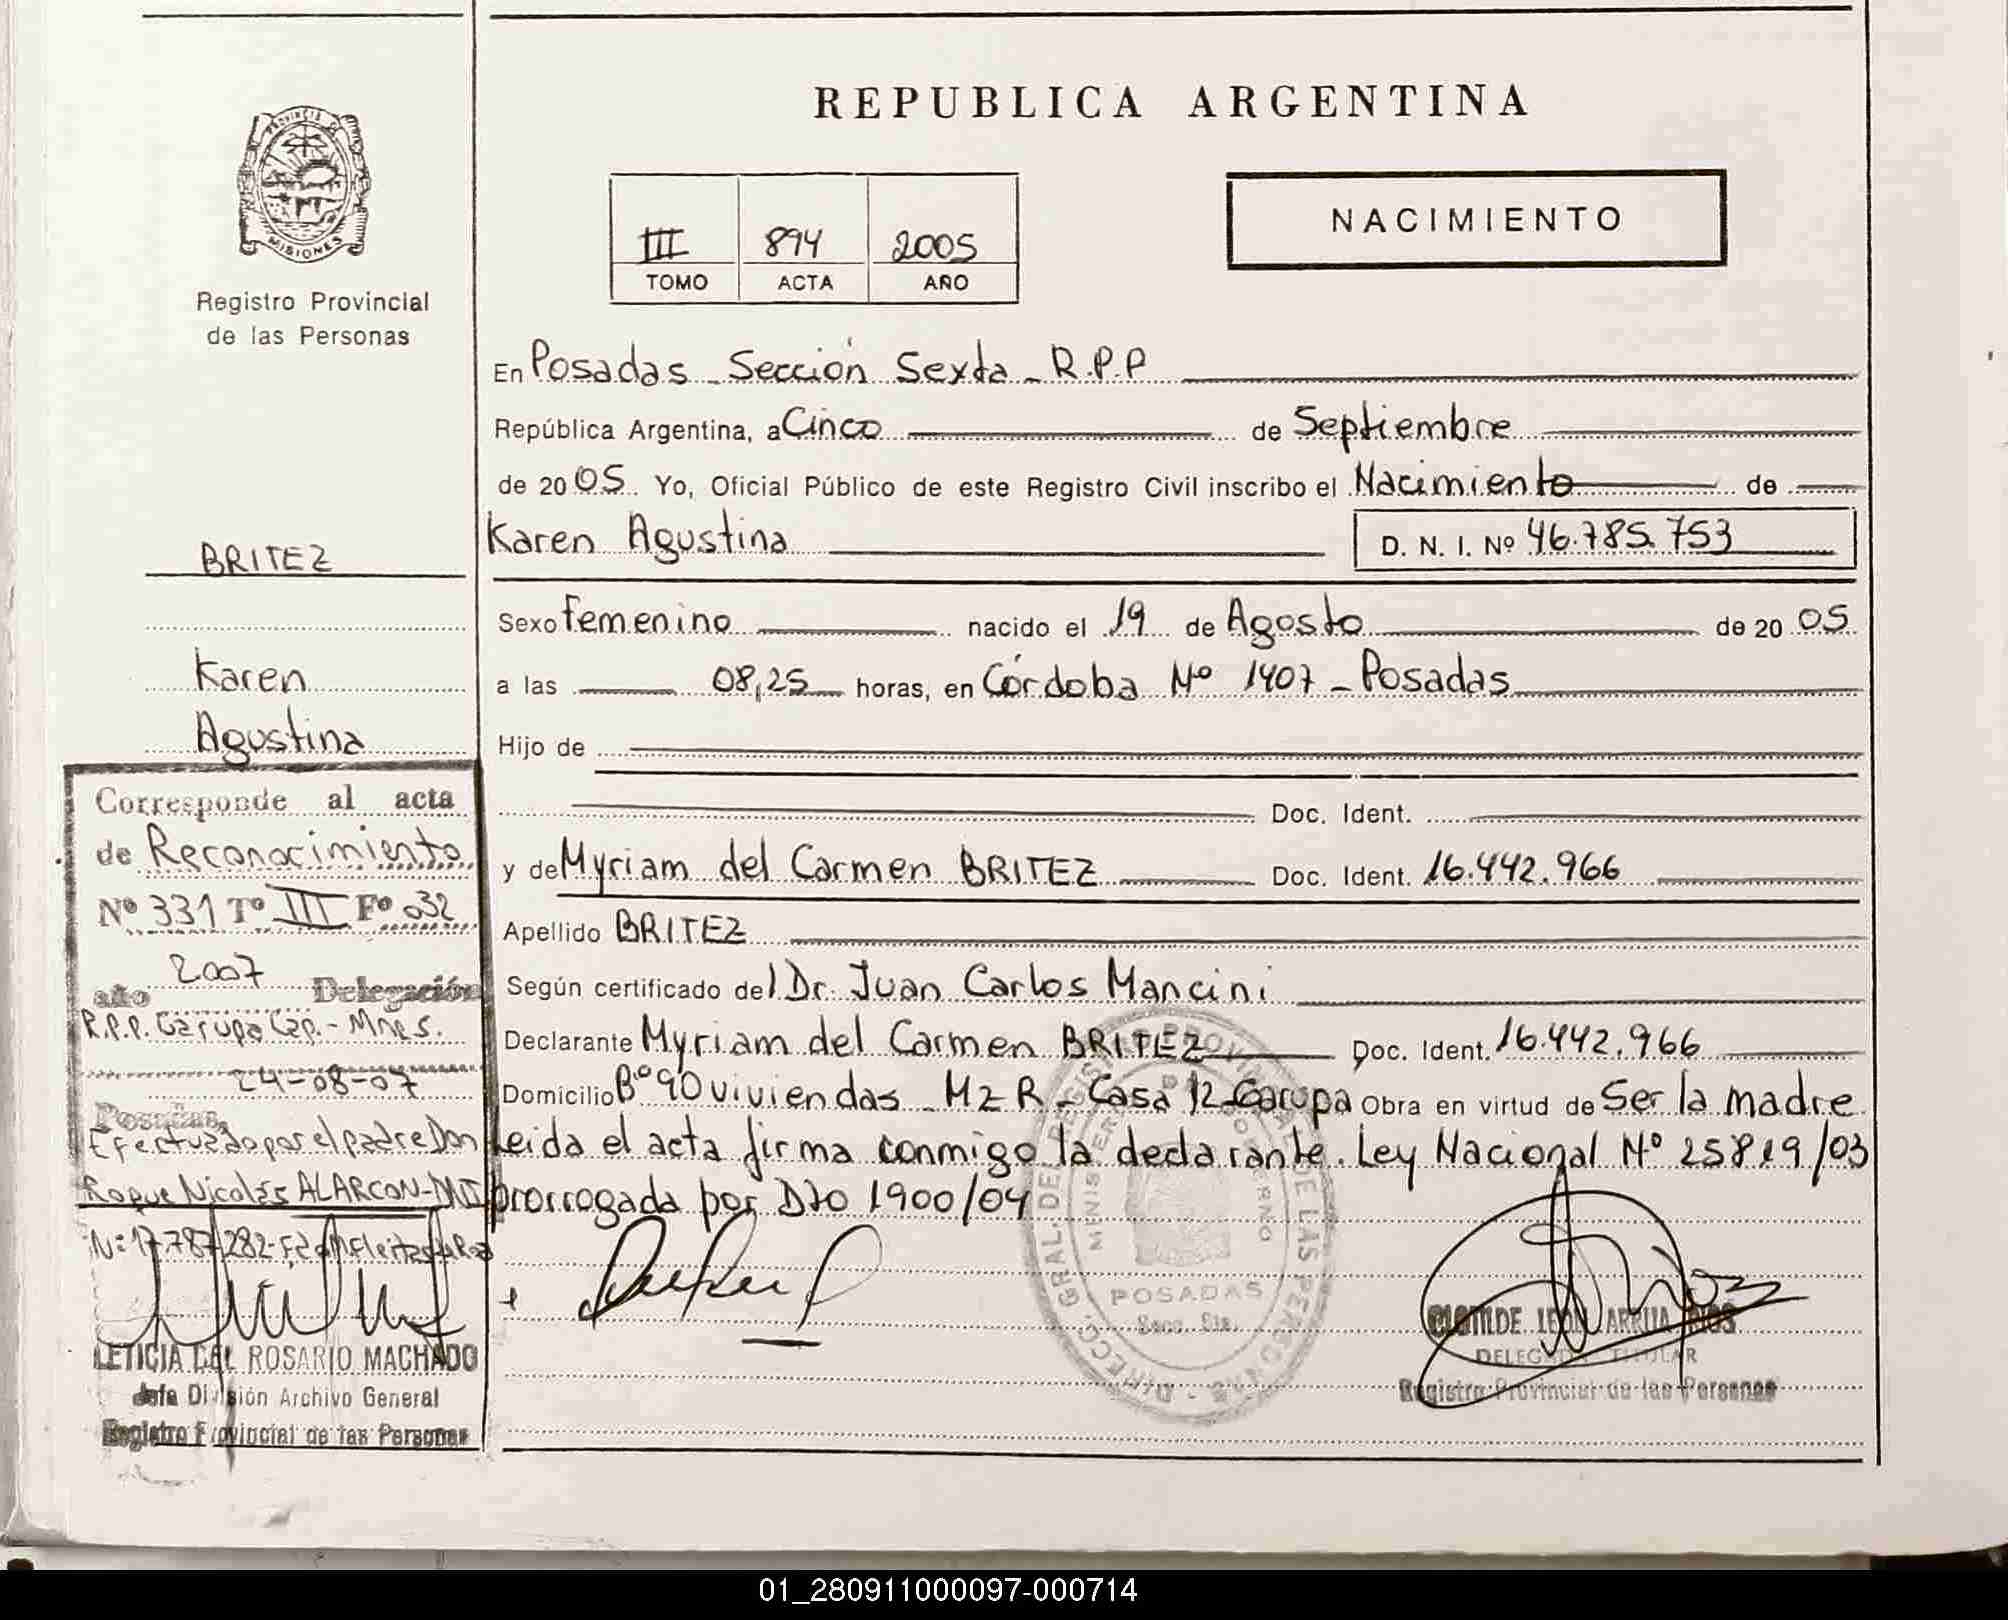 REPUBLICA ARGENTINA
PROVINCIA DE
MISIONES
Registro Provincial
de las Personas
III 894 2005
TOMO ACTA AÑO
NACIMIENTO
En Posadas - Sección Sexta - R.P.P
República Argentina, a Cinco de Septiembre
de 2005. Yo, Oficial Público de este Registro Civil inscribo el Nacimiento de
Karen Agustina D. N. I. Nº 46.785.753
Sexo Femenino nacido el 19 de Agosto de 2005
a las 08,25 horas, en Córdoba Nº 1407 - Posadas
Hijo de
Doc. Ident.
y de Myriam del Carmen BRITEZ Doc. Ident. 16.442.966
Apellido BRITEZ
Según certificado del Dr. Juan Carlos Mancini
Declarante Myriam del Carmen BRITEZ Doc. Ident. 16.442.966
Domicilio Bº 90 viviendas - Mz R - Casa 12 - Garupa Obra en virtud de Ser la madre
Leida el acta firma conmigo la declarante. Ley Nacional Nº 25819/03
prorrogada por Dto 1900/04
BRITEZ
Karen
Agustina
Corresponde al acta
de Reconocimiento
Nº 331 Tº III Fº 032
año 2007 Delegación
R.P.P. Garupa Cap. - Mnes.
24-08-07
Posadas,
Efectuado por el padre Don
Roque Nicolás ALARCON - DNI
Nº: 17.787.282
LETICIA DEL ROSARIO MACHADO
Jefa División Archivo General
Registro Provincial de las Personas
DIRECC. GRAL. DEL REGISTRO PROVINCIAL DE LAS PERSONAS
MINISTERIO DE GOBIERNO
POSADAS
Secc. 6ta.
CLOTILDE LEON ARRUA RIOS
DELEGADA TITULAR
Registro Provincial de las Personas
01_280911000097-000714